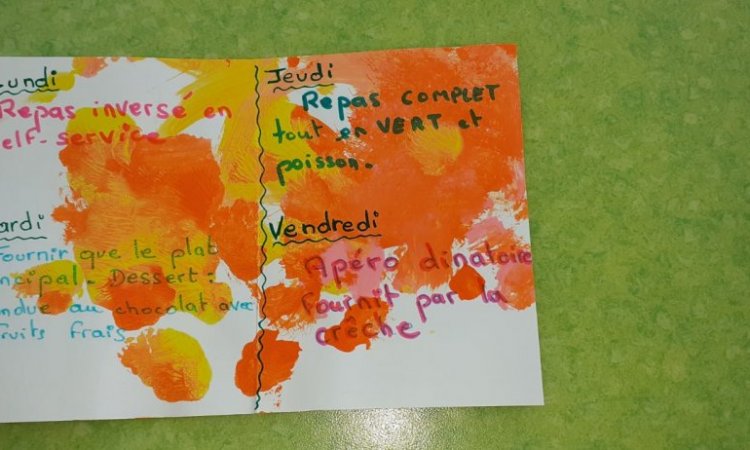 undi
Repas inversé en
elf-service
ardi
Fournir que le plat
ncipal. Dessert:
ndue au chocolat avec
fruits frais
Jeudi
Repas COMPLET
tout en VERT et
poisson.
Vendredi
Apéro dinatoire
Fournit par la
crèche